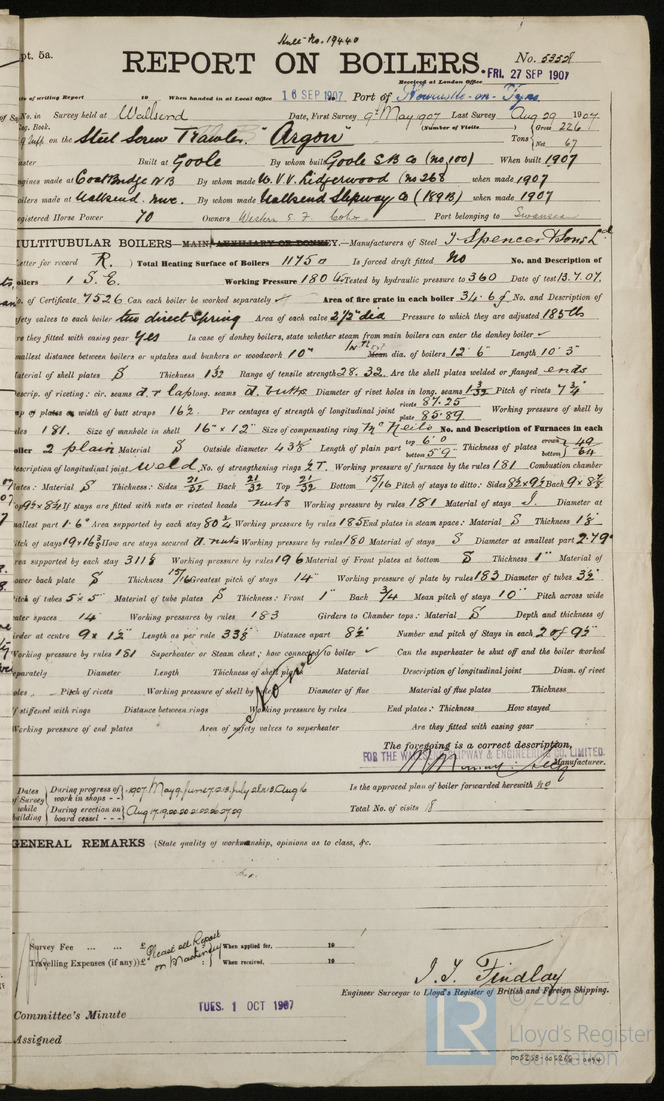 Hull No. 19440
pt. 5a.
REPORT ON BOILERS.
No. 53528
Received at London Office
FRI. 27 SEP 1907
te of writing Report 19 When handed in at Local Office 16 SEP 1907 Port of Newcastle-on-Tyne
No. in Survey held at Wallsend Date, First Survey 9th May 1907 Last Survey Aug 29 1907
Reg. Book. (Number of Visits )
on the Steel Screw Trawler "Argon" Tons Gross 226 Net 67
aster Built at Goole By whom built Goole S.B. Co (No, 100) When built 1907
gines made at Coatbridge N B By whom made W. V. V. Lidgerwood (No 268 when made 1907
oilers made at Wallsend. nwc. By whom made Wallsend Slipway Co (189B) when made 1907
egistered Horse Power 70 Owners Western S. F. Coho. Port belonging to Swansea
MULTITUBULAR BOILERS—MAIN, AUXILIARY OR DONKEY.—Manufacturers of Steel J Spencer & Sons Ld
Letter for record R. Total Heating Surface of Boilers 1175 Is forced draft fitted No No. and Description of
oilers 1 S.E. Working Pressure 180 lb Tested by hydraulic pressure to 360 Date of test 13.7.07.
o. of Certificate 7526 Can each boiler be worked separately Area of fire grate in each boiler 34.6 No. and Description of
fety valves to each boiler two direct Spring Area of each valve 2½" dia Pressure to which they are adjusted 185 lb
re they fitted with easing gear Yes In case of donkey boilers, state whether steam from main boilers can enter the donkey boiler
mallest distance between boilers or uptakes and bunkers or woodwork 10" Mean dia. of boilers 12' 6" Length 10' 3"
aterial of shell plates S Thickness 1 1/32 Range of tensile strength 28.32 Are the shell plates welded or flanged ends
escrip. of riveting: cir. seams d. r lap long. seams d. butts Diameter of rivet holes in long. seams 1 3/32 Pitch of rivets 7 3/4"
ap of plates or width of butt straps 16½ Per centages of strength of longitudinal joint rivets 87.25 plate 85.89 Working pressure of shell by
ules 181. Size of manhole in shell 16" × 12" Size of compensating ring McNeils No. and Description of Furnaces in each
oiler 2 plain Material S Outside diameter 43⅝ Length of plain part top 6' 0 bottom 5' 9" Thickness of plates crown 49/64 bottom
escription of longitudinal joint weld No. of strengthening rings ½ T. Working pressure of furnace by the rules 181 Combustion chamber
lates: Material S Thickness: Sides 21/32 Back 21/32 Top 21/32 Bottom 15/16 Pitch of stays to ditto: Sides 8½ x 9½ Back 9 x 8⅝
op 9½ x 8½ If stays are fitted with nuts or riveted heads nuts Working pressure by rules 181 Material of stays I. Diameter at
mallest part 1.6" Area supported by each stay 80¾ Working pressure by rules 185 End plates in steam space: Material S Thickness 1⅛
itch of stays 19 x 16⅜ How are stays secured d. nuts Working pressure by rules 180 Material of stays S Diameter at smallest part 2.79"
rea supported by each stay 311⅛ Working pressure by rules 196 Material of Front plates at bottom S Thickness 1" Material of
ower back plate S Thickness 15/16 Greatest pitch of stays 14" Working pressure of plate by rules 183 Diameter of tubes 3½
itch of tubes 5 x 5" Material of tube plates S Thickness: Front 1" Back ¾ Mean pitch of stays 10" Pitch across wide
ater spaces 14" Working pressures by rules 183 Girders to Chamber tops: Material S Depth and thickness of
irder at centre 9 x 1½" Length as per rule 33⅛ Distance apart 8½ Number and pitch of Stays in each 2 of 9½"
Working pressure by rules 181 Superheater or Steam chest; how connected to boiler Can the superheater be shut off and the boiler worked
eparately Diameter Length Thickness of shell plates Material Description of longitudinal joint Diam. of rivet
oles Pitch of rivets Working pressure of shell by Diameter of flue Material of flue plates Thickness
None
f stiffened with rings Distance between rings Working pressure by rules End plates: Thickness How stayed
Working pressure of end plates Area of safety valves to superheater Are they fitted with easing gear
The foregoing is a correct description,
FOR THE WALLSEND SLIPWAY & ENGINEERING CO. LIMITED.
Manufacturer.
Dates of Survey while building
During progress of work in shops - - 1907 May 9, June 7, 23, July 2, 11, 13, Aug 6
During erection on board vessel - - -
Is the approved plan of boiler forwarded herewith No
Total No. of visits 18
GENERAL REMARKS (State quality of workmanship, opinions as to class, &c.
Survey Fee ... ... £ When applied for, 19
Travelling Expenses (if any) £ When received, 19
Please see Report on Machinery
J. T. Findlay
Engineer Surveyor to Lloyd's Register of British and Foreign Shipping.
TUES. 1 OCT 1907
Committee's Minute
Assigned
© 2020
LR
Lloyd's Register
Foundation